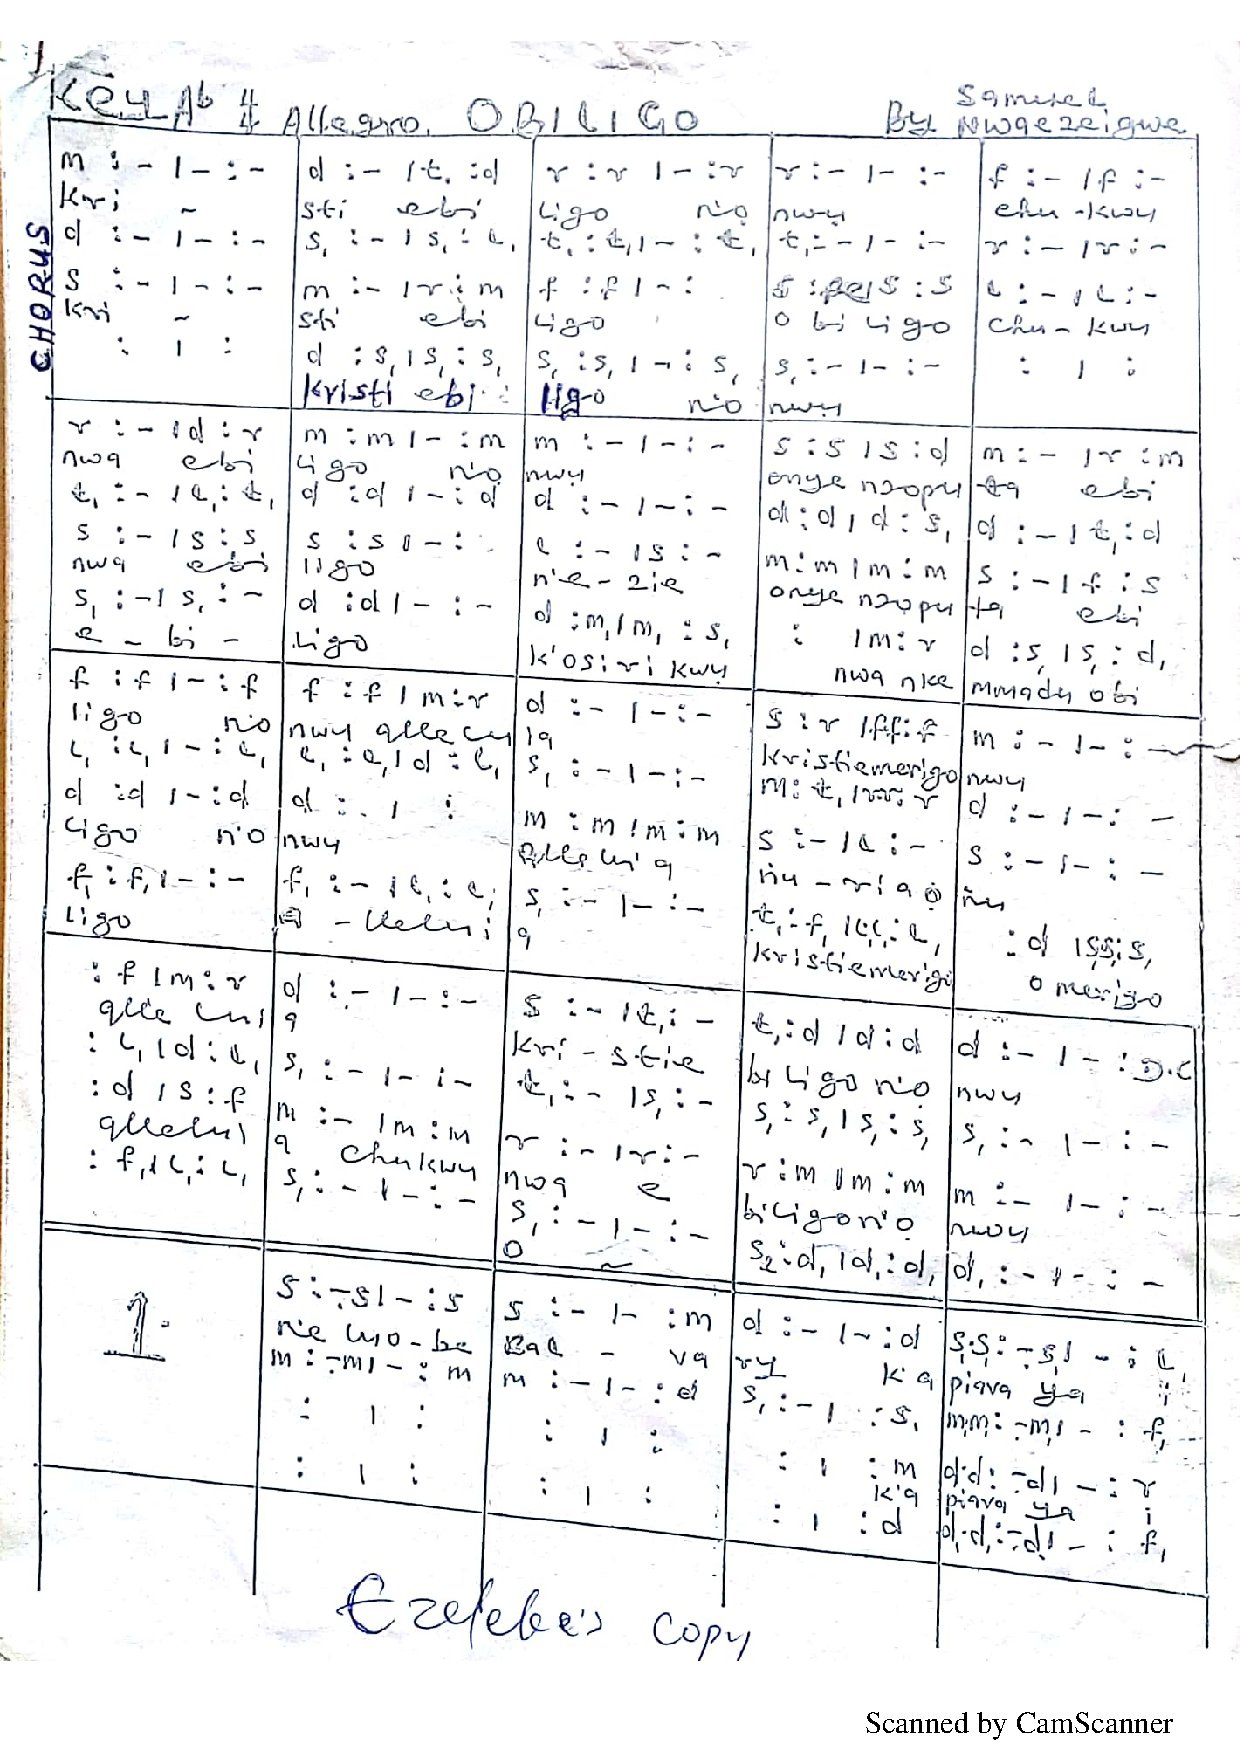 Key Ab 4/4 Allegro. OBILIGO By Samuel Nwaezeigwe
CHORUS
m :- | - :- d :- | t, :d r :r | - :r r :- | - :- f :- | f :-
Kri ~ sti ebi ligo n'o nwu chu-kwu
d :- | - :- s, :- | s, :l, t, :t, | - :t, t, :- | - :- r :- | r :-
s :- | - :- m :- | r :m f :f | - : s :fe | s :s l :- | l :-
kri ~ sti ebi ligo o bi ligo chu-kwu
: | : d :s, | s, :s, s, :s, | - :s, s, :- | - :- : | :
kristi ebi ligo n'o nwu
r :- | d :r m :m | - :m m :- | - :- s :s | s :d m :- | r :m
nwa ebi ligo n'o nwu onye nzopu ta ebi
t, :- | l, :t, d :d | - :d d :- | - :- d :d | d :s, d :- | t, :d
s :- | s :s s :s | - : l :- | s :- m :m | m :m s :- | f :s
nwa ebi ligo n'e-zie onye nzopu ta ebi
s, :- | s, :- d :d | - :- d :m, | m, :s, : | m :r d :s, | s, :d,
e-bi- ligo k'osiri kwu nwa nke mmadu obi
f :f | - :f f :f | m :r d :- | - :- s :r | f.f :f m :- | - :-
ligo n'o nwu allelu ia kristiemerigo nwu
l, :l, | - :l, l, :l, | d :l, s, :- | - :- d :- | - :-
d :d | - :d d : | : m :m | m :m s :- | l :- s :- | - :-
ligo n'o nwu Allelui a nu-ria o nu
f, :f, | - :- f, :- | l, :l, s, :- | - :- : d | s,s, :s,
ligo a kristiemerigo omerigo
: f | m :r d :- | - :- s :- | t, :- t, :d | d :d d :- | - : D.C
allelui a kri-stie bi ligo n'o nwu
: l, | d :l, s, :- | - :- t, :- | s, :- s, :s, | s, :s, s, :- | - :-
: d | s :f m :- | m :m r :- | r :- r :m | m :m m :- | - :-
allelui a chukwu nwa e biligo n'o nwu
: f, | l, :l, s, :- | - :- s, :- | - :- s2 :d, | d, :d, d, :- | - :-
o ~
1. s :-.s | - :s s :- | - :m d :- | - :d s,.s, :-.s, | - :l,
n'e luo-be kal - va ry k'a piava ya i
m :-.m | - :m m :- | - :d s, :- | :s, m,m, :-.m, | - :f,
: | : : | : : | :m d.d :-.d | - :r
k'a piava ya i
: | : : | : : | :d d,.d, :-.d, | - :f,
Ezeleke's copy
Scanned by CamScanner